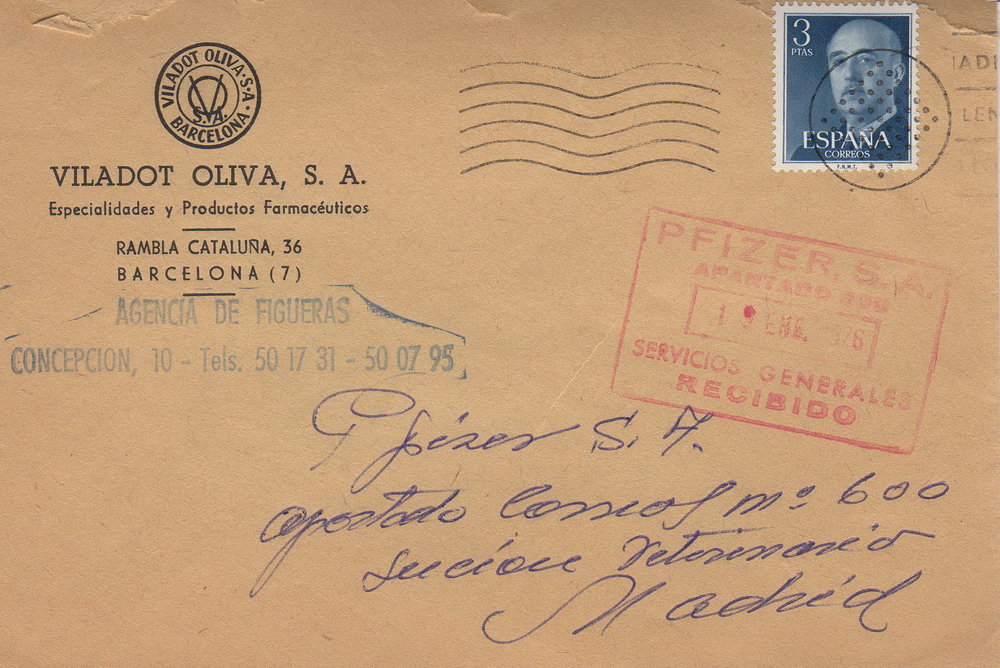 VILADOT OLIVA·S·A·
BARCELONA·
VO
S.A.
VILADOT OLIVA, S. A.
Especialidades y Productos Farmacéuticos
RAMBLA CATALUÑA, 36
BARCELONA (7)
AGENCIA DE FIGUERAS
CONCEPCION, 10 - Tels. 50 17 31 - 50 07 95
3
PTAS
ESPAÑA
CORREOS
F.N.M.T.
PFIZER, S. A.
APARTADO 600
19 ENE. 1976
SERVICIOS GENERALES
RECIBIDO
Pfizer S. A.
apartado Correos nº 600
Seccion Veterinaria
Madrid